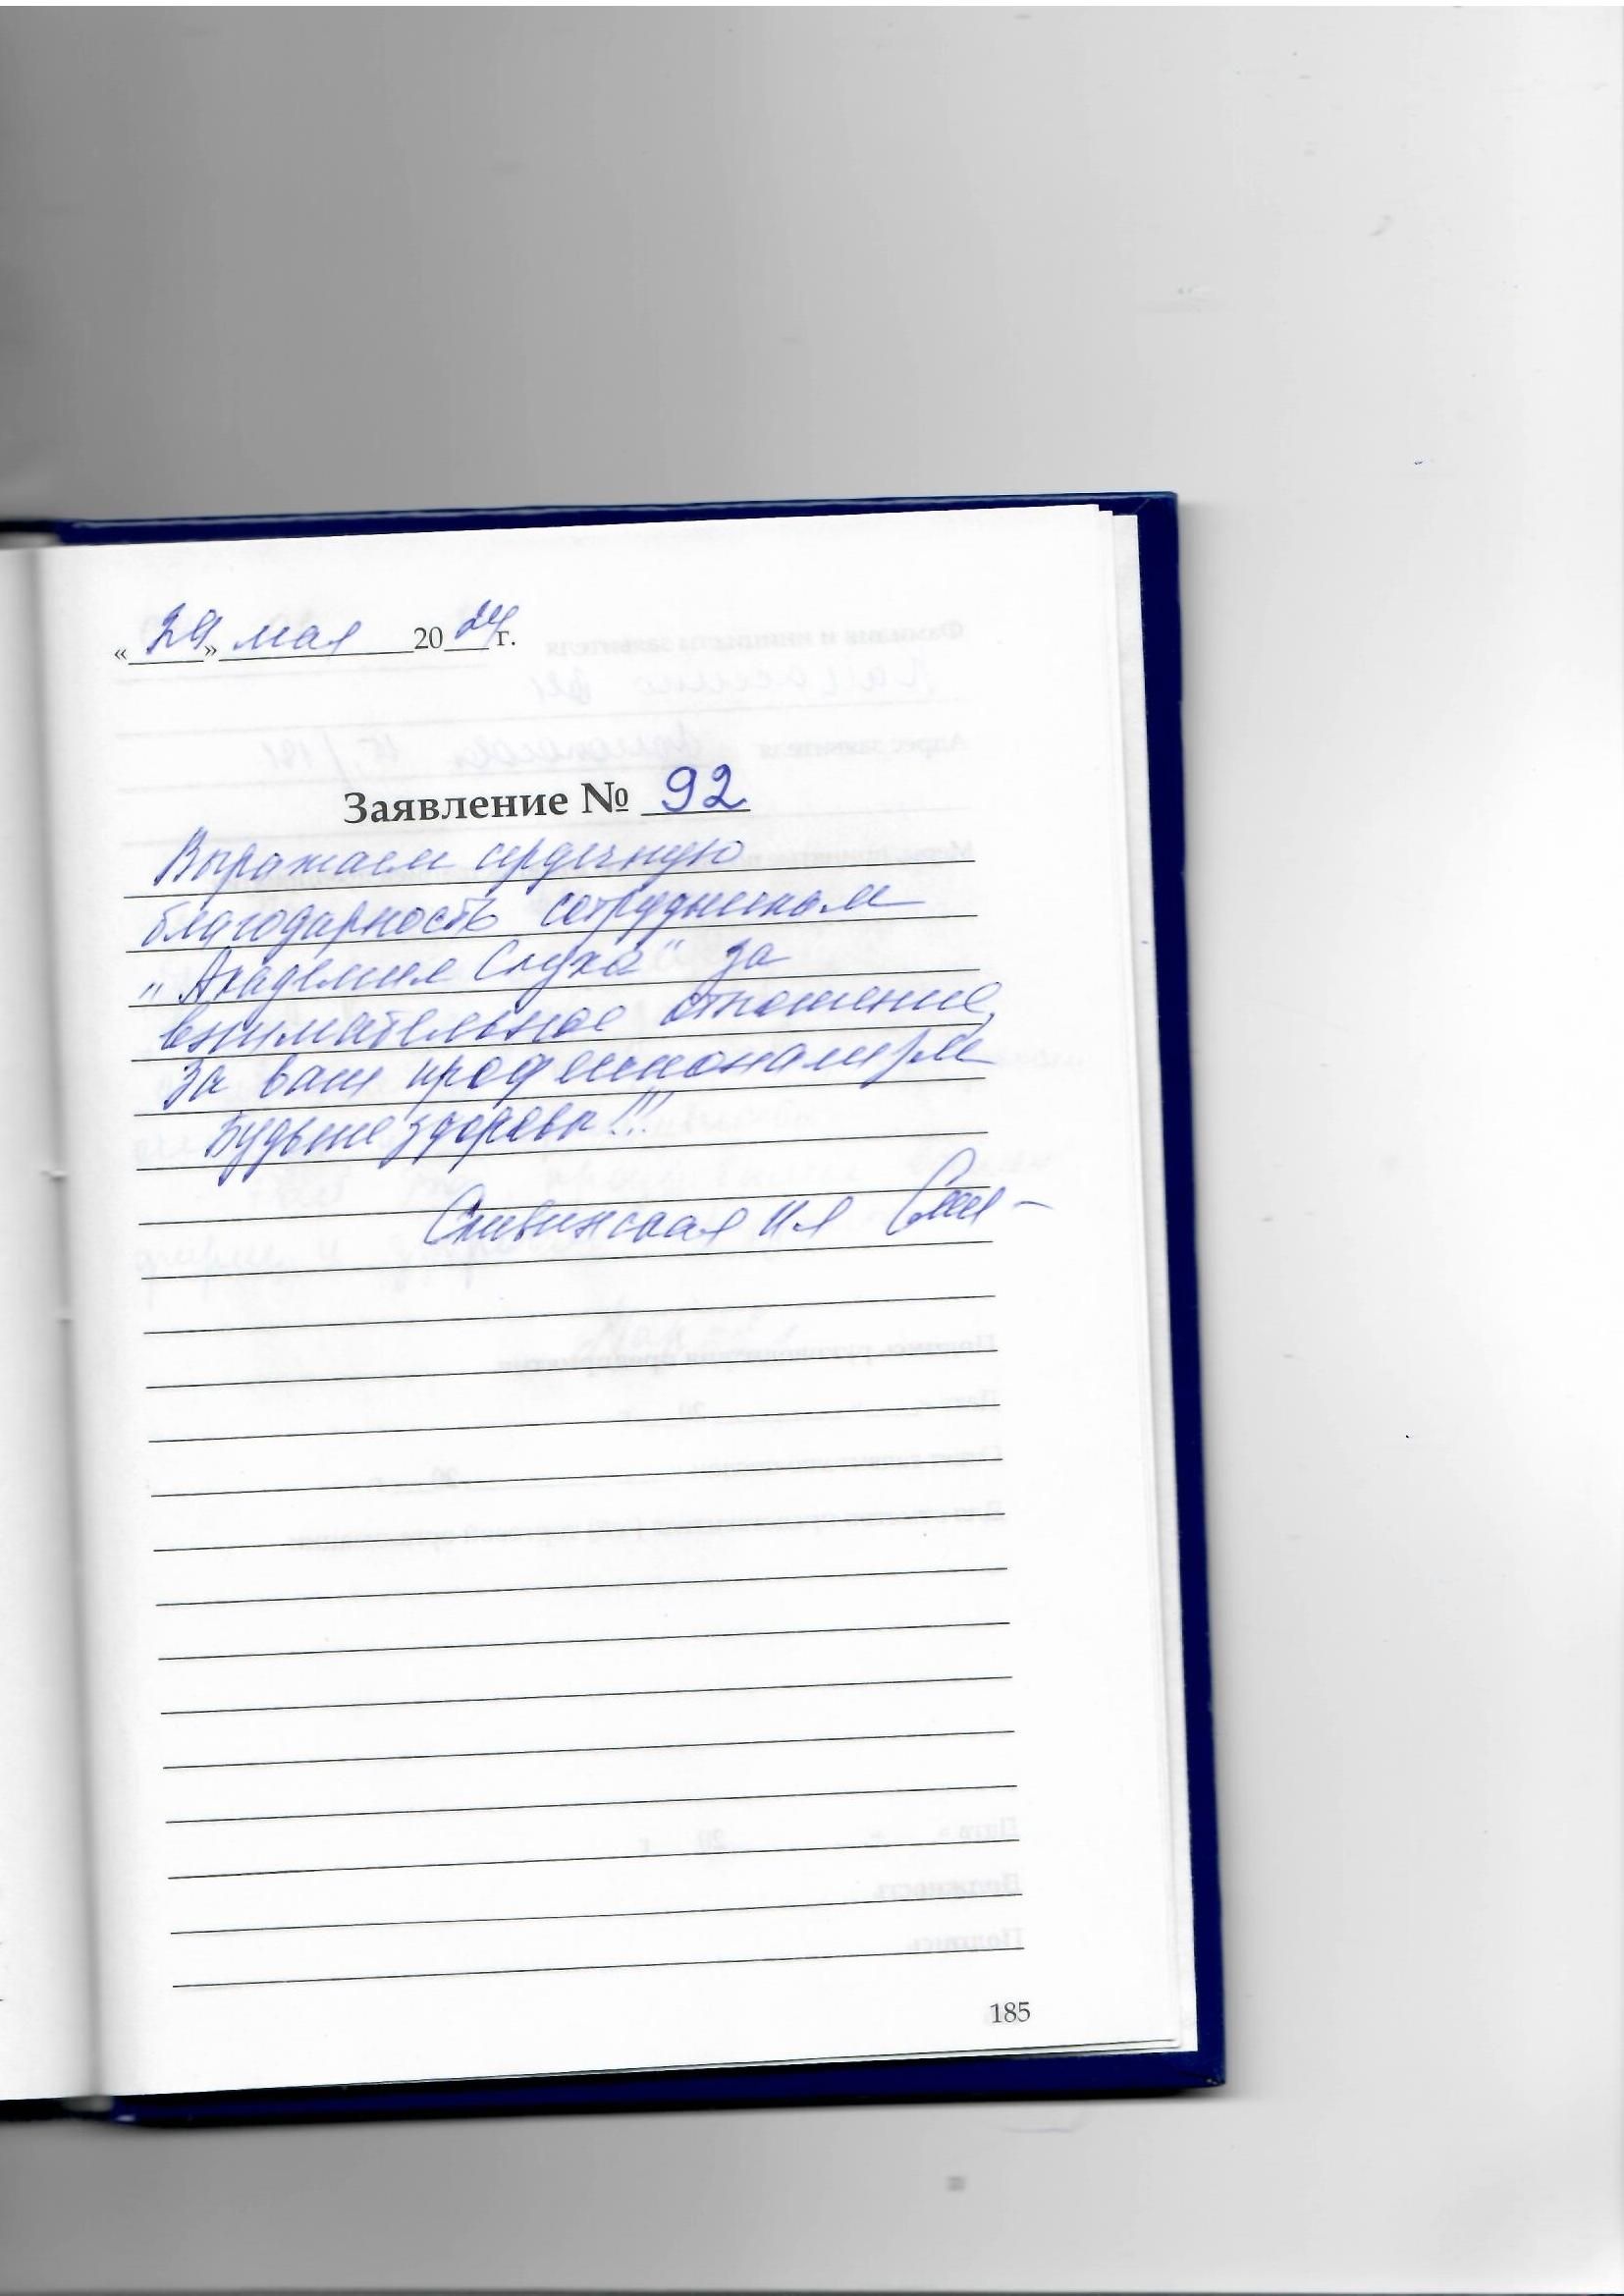 «29» мая 2024г.
Заявление № 92
Выражаем сердечную
благодарность сотрудникам
"Академия Слуха" за
внимательное отношение,
за ваш профессионализм
Будьте здоровы!!!
Сливинская
185